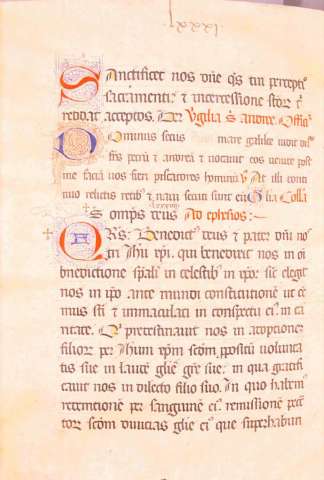 lxxxj
Sanctificet nos dñe q̃s tui percepti
sacramenti ⁊ intercessione sctoꝝ
reddat acceptos. Per Uigilia s̃ andree Offiũ
Dominus secus mare galilee uidit duos
frs̃ petrũ ⁊ andreã ⁊ uocauit eos uenite post
me faciã uos fieri piscatores hominũ At illi conti
nuo relictis retibꝰ ⁊ naui secuti sunt eũ
Omps̃ deus Ad ephesios
Frs̃ Benedictꝰ deus ⁊ pater dñi no
stri Jhu xp̃i. qui benedixit nos in oi
bñedictione sp̃ali in celestibꝰ in xp̃o. sic elegit
nos in ip̃o ante mundi constitutionẽ ut eẽ
mus scti ⁊ immaculati in conspectu eiꝰ in ca
ritate. Qui predestinauit nos in adoptionẽ
filioꝝ per Jhum xp̃m scdm̃ propositũ volunta
tis sue in laudẽ glie gr̃e sue. in qua gratifi
cauit nos in dilecto filio suo. In quo habemꝰ
redemcionẽ per sanguinẽ eiꝰ. remissionẽ pecca
toꝝ scdm diuicias glie eiꝰ que superhabun